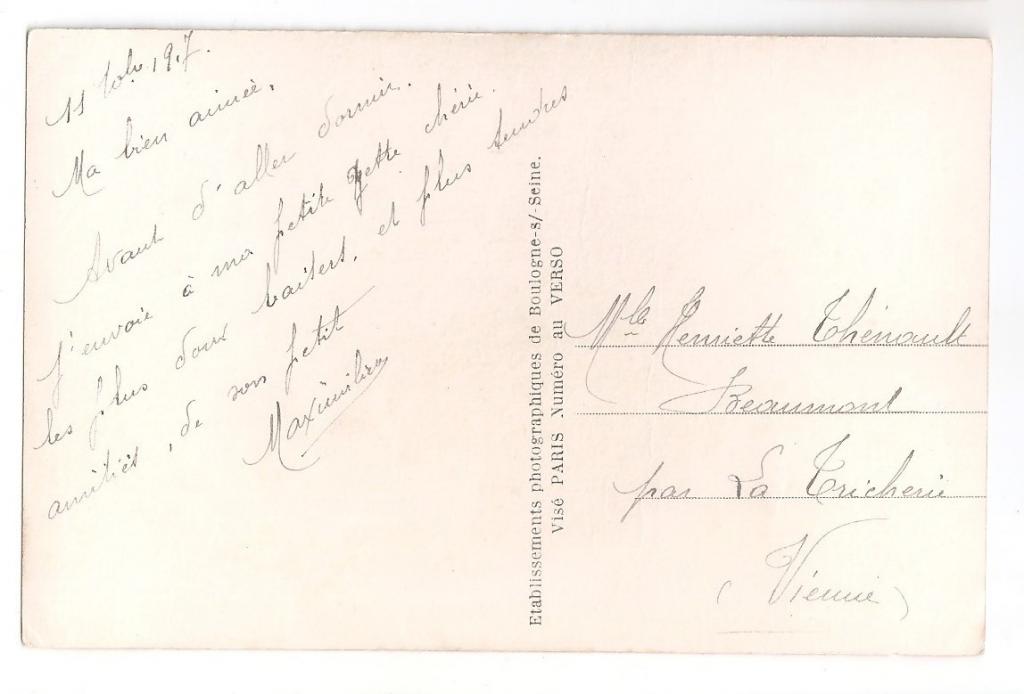 11 1917.
Ma bien aimée,
Avant d'aller dormir.
j'envoie à ma petite Yette chérie.
les plus doux baisers, et plus tendres
amitiés, de son petit
Maximilien
Etablissements photographiques de Boulogne-s/-Seine.
Visé PARIS Numéro au VERSO
Mlle Henriette Thénault
Beaumont
par La Tricherie
(Vienne)